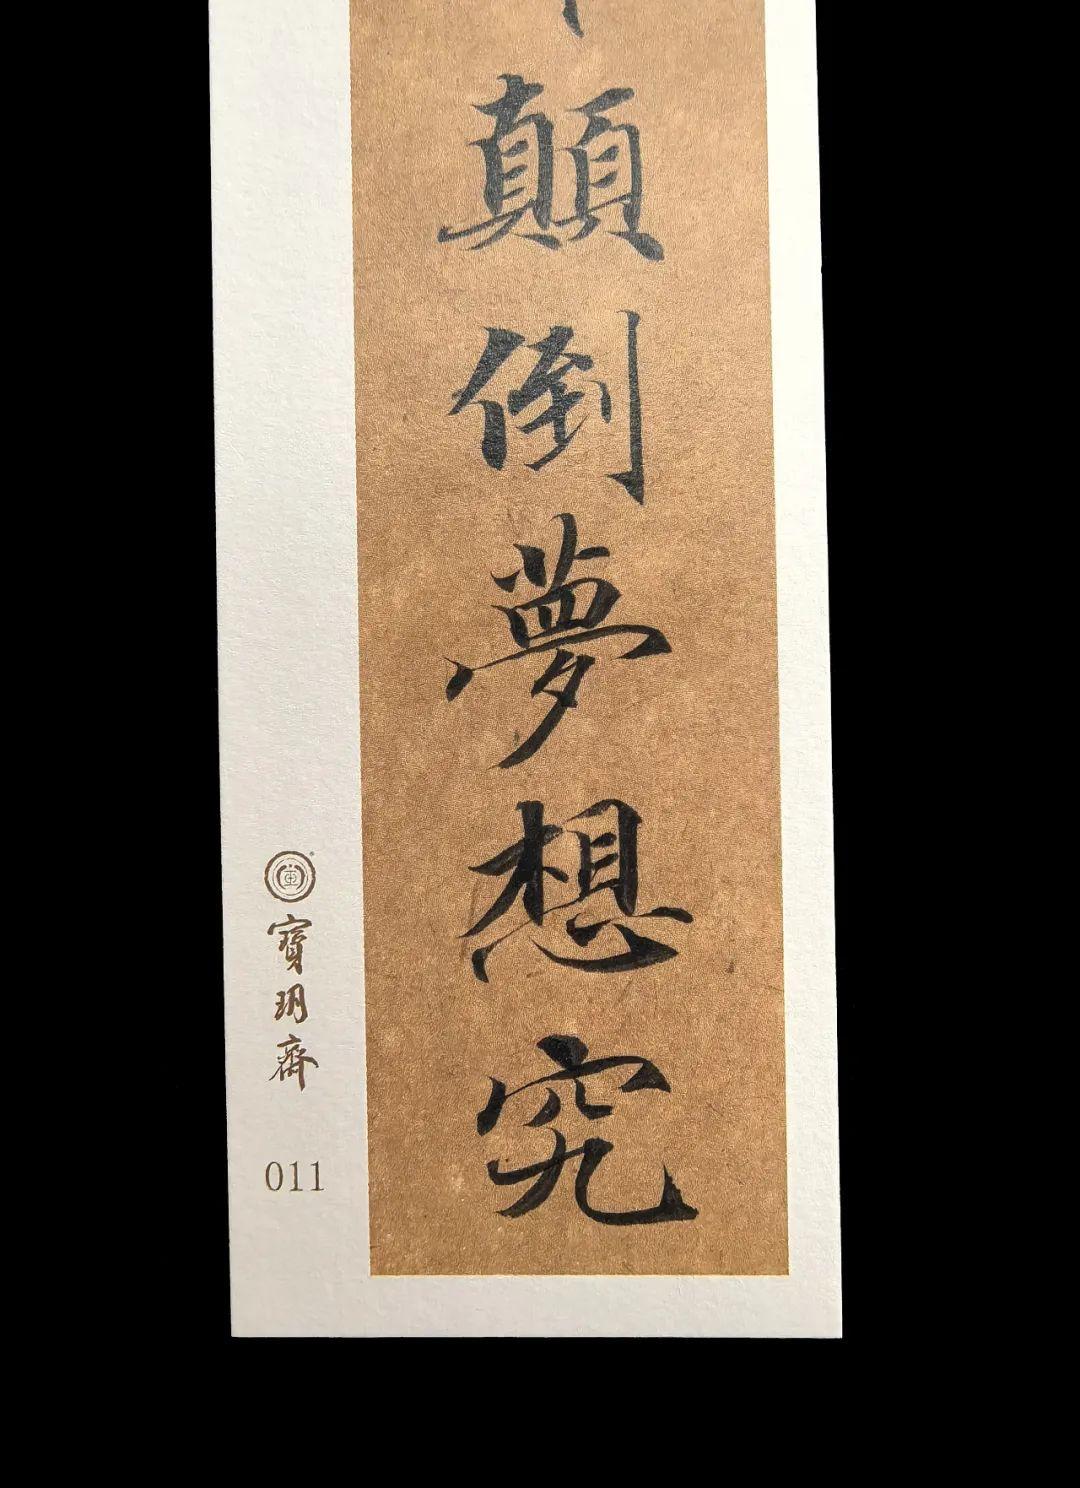 顛倒夢想究
寶玥齋
011